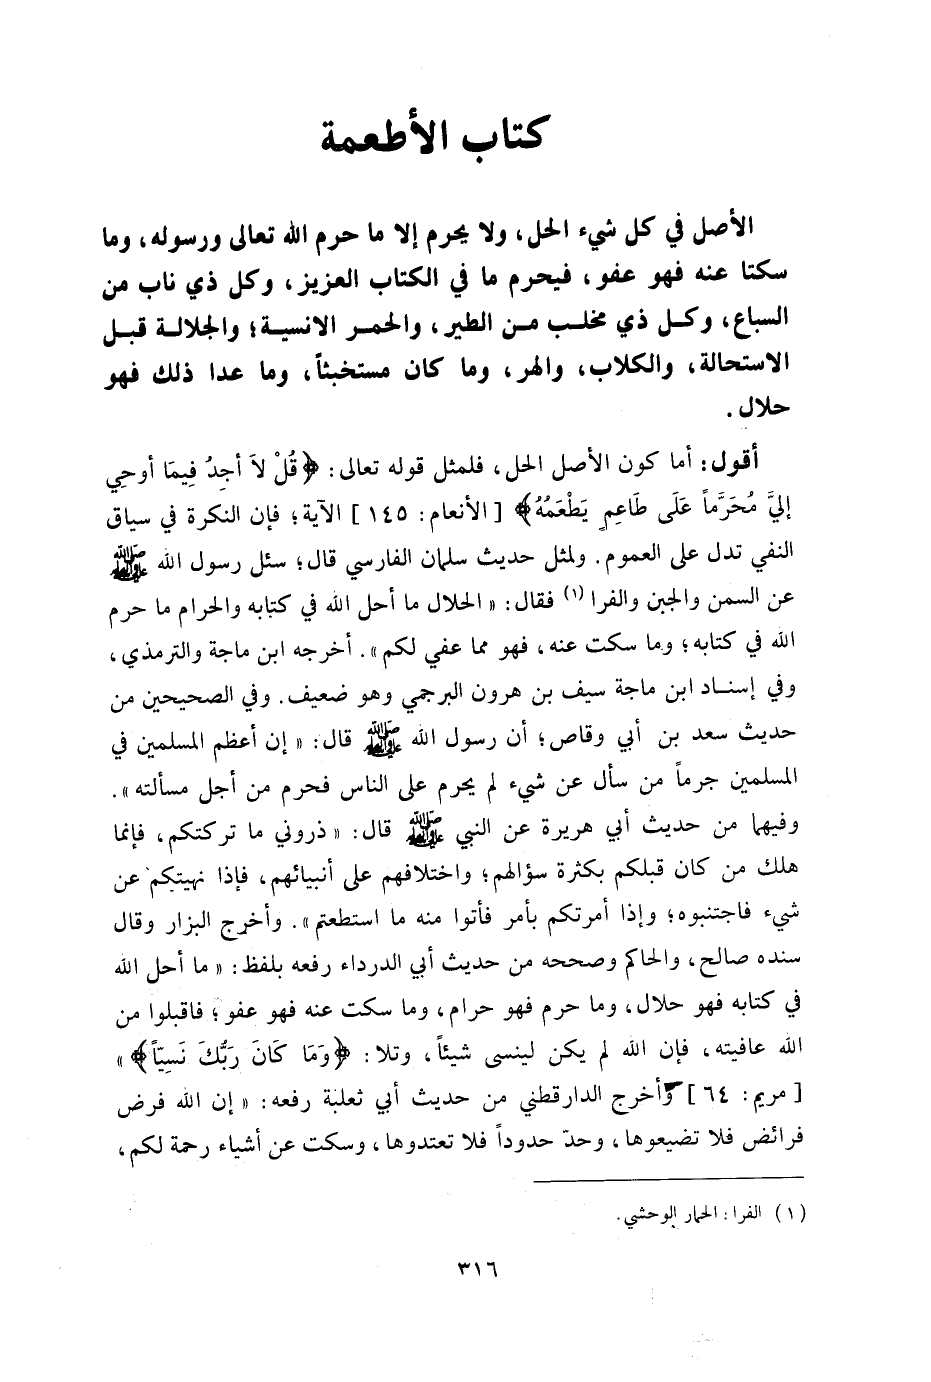 كتاب الأطعمة
الأصل في كل شيء الحل، ولا يحرم إلا ما حرم الله تعالى ورسوله، وما
سكتا عنه فهو عفو، فيحرم ما في الكتاب العزيز، وكل ذي ناب من
السباع، وكل ذي مخلب من الطير، والحمر الانسية؛ والجلالة قبل
الاستحالة، والكلاب، والهر، وما كان مستخبثاً، وما عدا ذلك فهو
حلال.
أقول: أما كون الأصل الحل، فلمثل قوله تعالى: ﴿قُلْ لاَ أجِدُ فِيمَا أوحِي
إليَّ مُحَرَّماً عَلَى طَاعِمٍ يَطْعَمُهُ﴾ [الأنعام: ١٤٥] الآية؛ فإن النكرة في سياق
النفي تدل على العموم. ولمثل حديث سلمان الفارسي قال؛ سئل رسول الله ﷺ
عن السمن والجبن والفرا (١) فقال: «الحلال ما أحل الله في كتابه والحرام ما حرم
الله في كتابه؛ وما سكت عنه، فهو مما عفي لكم». أخرجه ابن ماجة والترمذي،
وفي إسناد ابن ماجة سيف بن هرون البرجمي وهو ضعيف. وفي الصحيحين من
حديث سعد بن أبي وقاص؛ أن رسول الله ﷺ قال: «إن أعظم المسلمين في
المسلمين جرماً من سأل عن شيء لم يحرم على الناس فحرم من أجل مسألته».
وفيهما من حديث أبي هريرة عن النبي ﷺ قال: «ذروني ما تركتكم، فإنما
هلك من كان قبلكم بكثرة سؤالهم؛ واختلافهم على أنبيائهم، فإذا نهيتكم عن
شيء فاجتنبوه؛ وإذا أمرتكم بأمر فأتوا منه ما استطعتم». وأخرج البزار وقال
سنده صالح، والحاكم وصححه من حديث أبي الدرداء رفعه بلفظ: «ما أحل الله
في كتابه فهو حلال، وما حرم فهو حرام، وما سكت عنه فهو عفو؛ فاقبلوا من
الله عافيته، فإن الله لم يكن لينسى شيئاً، وتلا: ﴿وَمَا كَانَ رَبُّكَ نَسِيّاً﴾»
[مريم: ٦٤] وأخرج الدارقطني من حديث أبي ثعلبة رفعه: «إن الله فرض
فرائض فلا تضيعوها، وحدّ حدوداً فلا تعتدوها، وسكت عن أشياء رحمة لكم،
(١) الفرا: الحمار الوحشي.
٣١٦